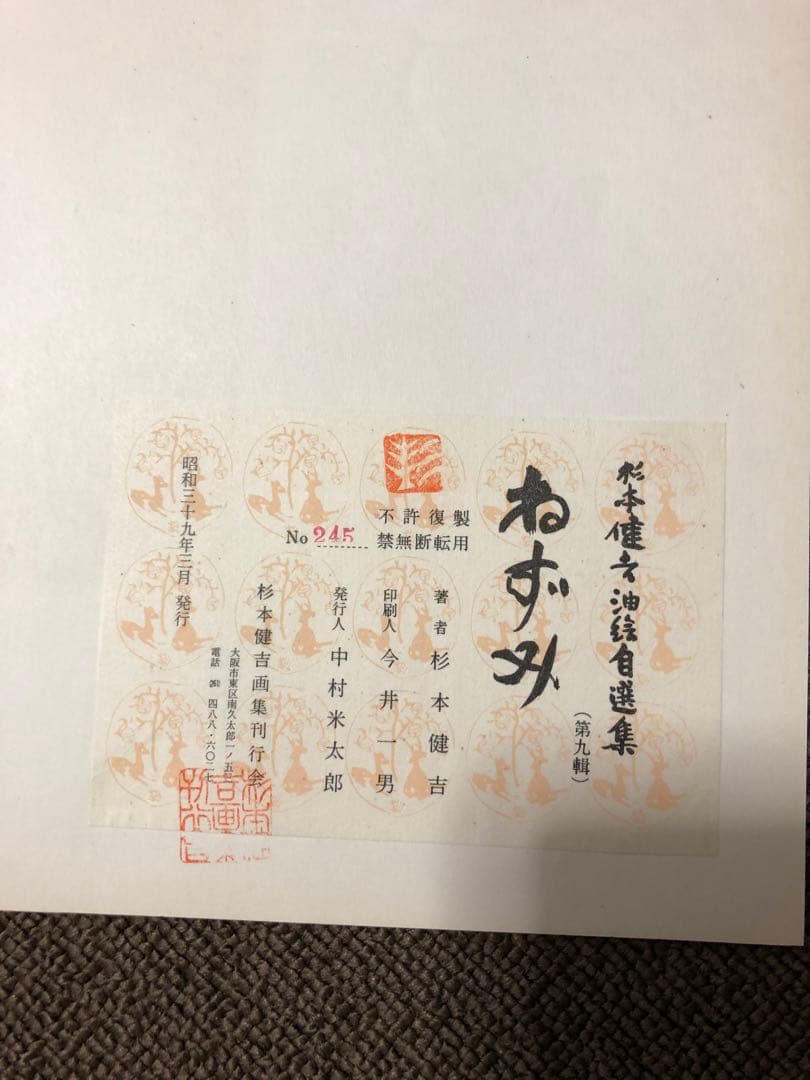 杉本健吉油絵自選集
ねずみ
（第九輯）
不許復製
禁無断転用
No 245
著者 杉本健吉
印刷人 今井一男
発行人 中村米太郎
杉本健吉画集刊行会
大阪市東区南久太郎一ノ五三
電話 四八八・六〇二七
昭和三十九年三月 発行